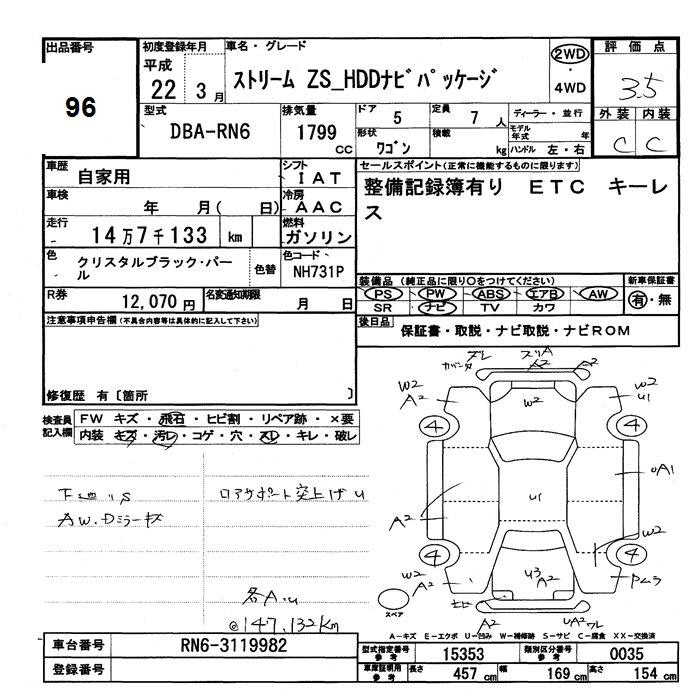 出品番号
96
初度登録年月
平成
22 3月
車名・グレード
ストリーム ZS_HDDナビパッケージ
2WD
・
4WD
評価点
3.5
外装 内装
C C
型式
DBA-RN6
排気量
1799
CC
ドア 5
形状 ワゴン
定員 7 人
積載 kg
ディーラー・並行
モデル年式 年
ハンドル 左・右
車歴
自家用
シフト
IAT
車検
年 月( 日)
冷房
AAC
走行
14万7千133 km
燃料
ガソリン
色
クリスタルブラック・パール
色替
色コード
NH731P
R券
12,070円
名変通知期限
月 日
セールスポイント(正常に機能するものに限ります)
整備記録簿有り ETC キーレス
装備品(純正品に限り○をつけてください)
PS PW ABS エアB AW
SR ナビ TV カワ
新車保証書
有・無
後日品
保証書・取説・ナビ取説・ナビROM
注意事項申告欄(不具合内容等は具体的に記入して下さい)
修復歴 有〔箇所 〕
検査員記入欄
FW キズ・飛石・ヒビ割・リペア跡・×要
内装 キズ・汚レ・コゲ・穴・スレ・キレ・破レ
ロアサポート突上げU
AW.Dミラーキズ
各A.U
@147,132Km
ズレ
A2
A2
W2
A2
W2
U1
W2
4
4
U1
UA1
A2
W2
4
4
W2
A2
U3
A2
A2
UA2
スペア
A-キズ E-エクボ U-凹み W-補修跡 S-サビ C-腐食 XX-交換済
車台番号
RN6-3119982
登録番号
型式指定番号参考
15353
類別区分番号参考
0035
車庫証明用参考
長さ 457 cm
幅 169 cm
高さ 154 cm